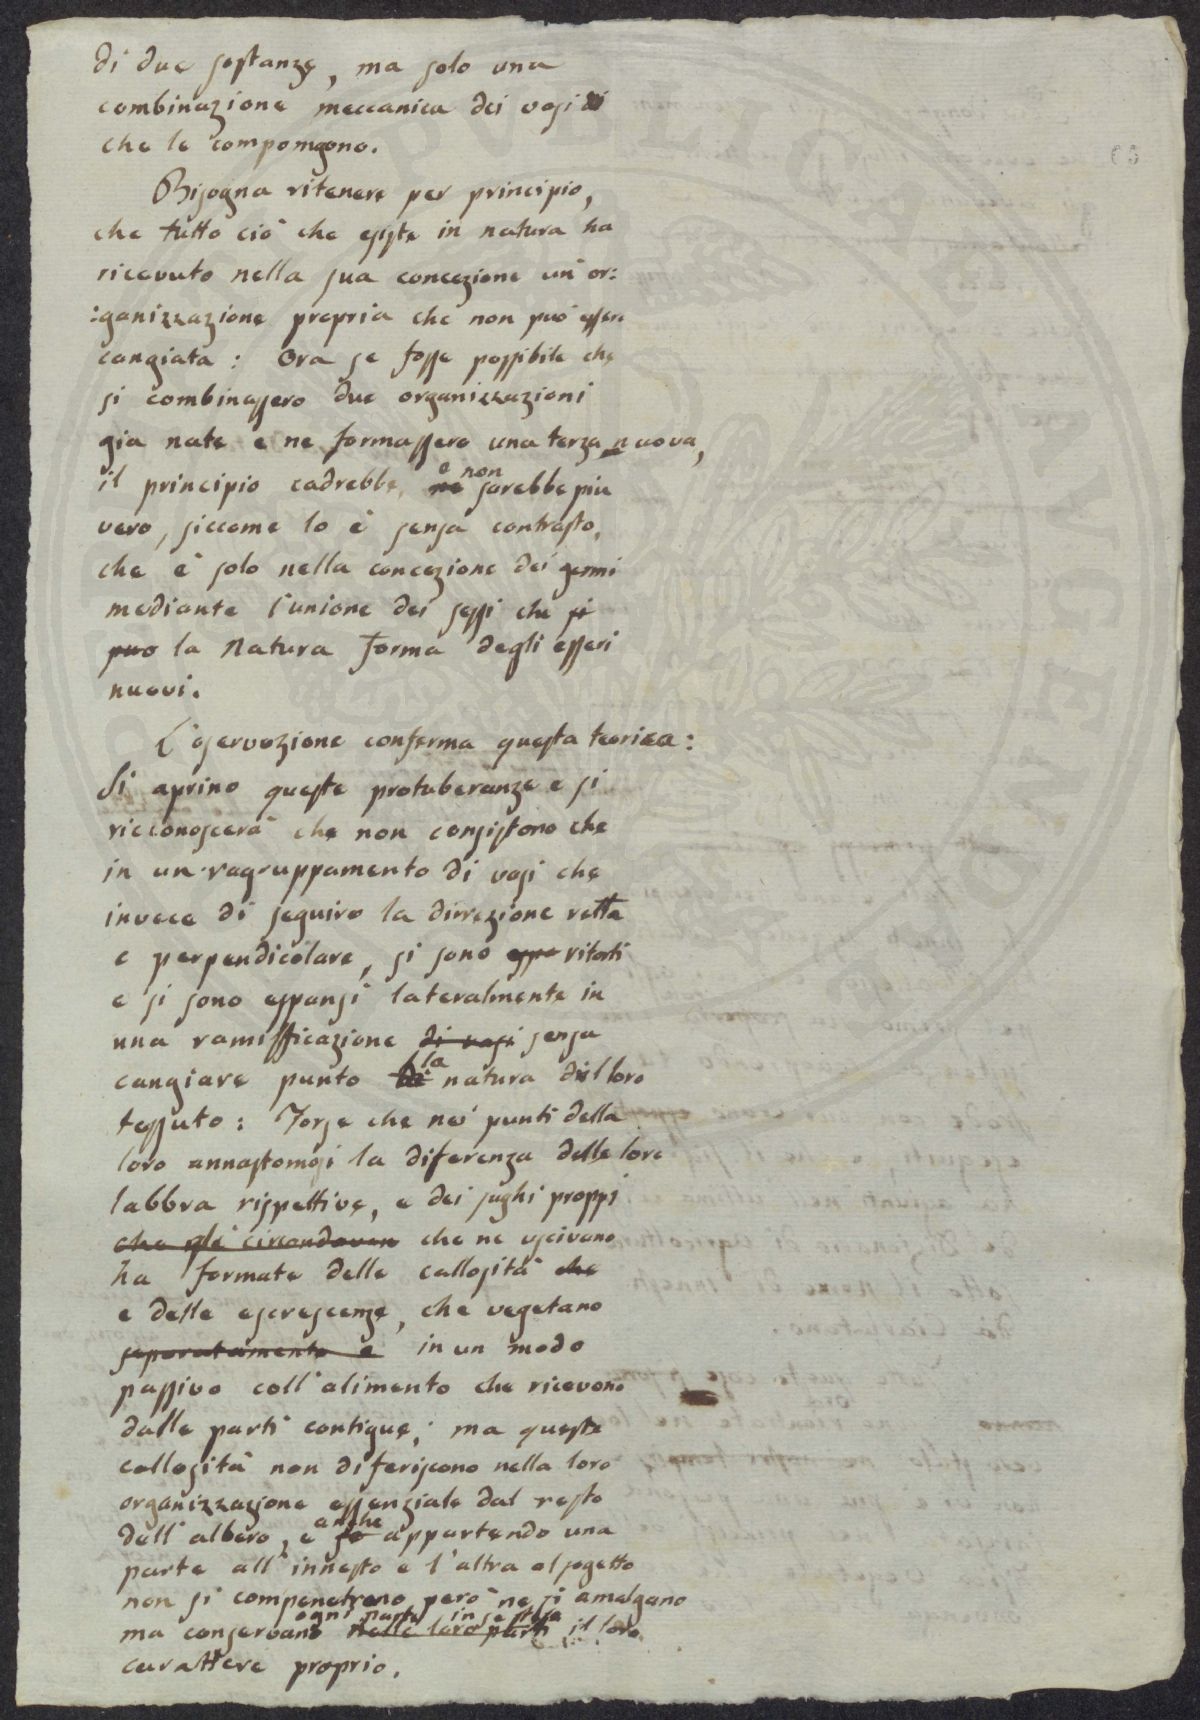 di due sostanze, ma solo una
combinazione meccanica dei vasi di
che le compomgono.
Bisogna ritenere per principio,
che tutto ciò che esiste in natura ha
ricevuto nella sua concezione un or:
:ganizzazione propria che non può essere
cangiata: Ora se fosse possibile che
si combinassero due organizzazioni
gia nate e ne formassero una terza nuova,
il principio cadrebbe, ne e non sarebbe più
vero, siccome lo è sensa contrasto,
che è solo nella concezione dei germi
mediante l'unione dei sessi che si
puo la Natura forma degli esseri
nuovi.
L'oservazione conferma questa teorica:
Si aprino queste protuberanze e si
ricconoscerà che non consistono che
in un ragruppamento di vasi che
invece di seguire la dirrezione retta
e perpendicolare, si sono espa ritorti
e si sono espansi lateralmente in
una ramifficazione di vasi sensa
cangiare punto di la natura del loro
tessuto: Forse che nei punti della
loro annastomosi la diferenza delle loro
labbra rispettive, e dei sughi proppi
che gli circondaven che ne uscivano
ha formate delle callosità che
e delle escrescenze, che vegetano
separatamente e in un modo
passivo coll'alimento che ricevono
dalle parti contigue; ma queste
callosità non diferiscono nella loro
organizzazione essenziale dal resto
dell'albero, e se anche appartendo una
parte all'innesto e l'altra al sogetto
non si compenetrano però ne si amalgano
ma conservano nelle loro parti ogni parte in se stessa il loro
carattere proprio.